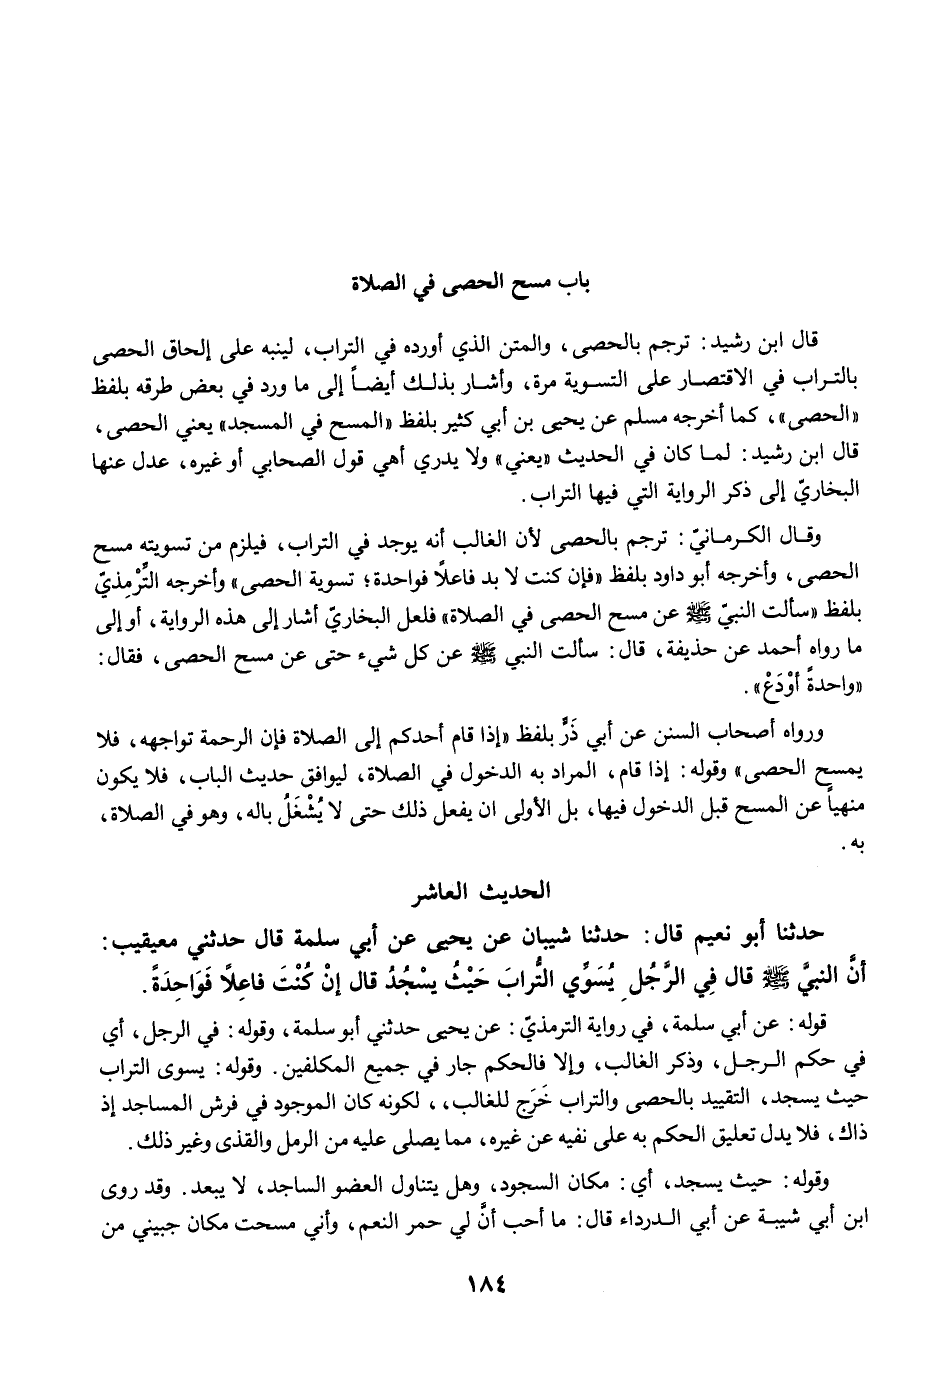 باب مسح الحصى في الصلاة
قال ابن رشيد: ترجم بالحصى، والمتن الذي أورده في التراب، لينبه على إلحاق الحصى
بالتراب في الاقتصار على التسوية مرة، وأشار بذلك أيضاً إلى ما ورد في بعض طرقه بلفظ
«الحصى»، كما أخرجه مسلم عن يحيى بن أبي كثير بلفظ «المسح في المسجد» يعني الحصى،
قال ابن رشيد: لما كان في الحديث «يعني» ولا يدري أهي قول الصحابي أو غيره، عدل عنها
البخاريّ إلى ذكر الرواية التي فيها التراب.
وقال الكرمانيّ: ترجم بالحصى لأن الغالب أنه يوجد في التراب، فيلزم من تسويته مسح
الحصى، وأخرجه أبو داود بلفظ «فإن كنت لا بد فاعلًا فواحدة؛ تسوية الحصى» وأخرجه التِّرْمِذيّ
بلفظ «سألت النبيّ ﷺ عن مسح الحصى في الصلاة» فلعل البخاريّ أشار إلى هذه الرواية، أو إلى
ما رواه أحمد عن حذيفة، قال: سألت النبي ﷺ عن كل شيء حتى عن مسح الحصى، فقال:
«واحدةً أوْدَعْ».
ورواه أصحاب السنن عن أبي ذَرٍّ بلفظ «إذا قام أحدكم إلى الصلاة فإن الرحمة تواجهه، فلا
يمسح الحصى» وقوله: إذا قام، المراد به الدخول في الصلاة، ليوافق حديث الباب، فلا يكون
منهياً عن المسح قبل الدخول فيها، بل الأولى ان يفعل ذلك حتى لا يُشْغَلُ باله، وهو في الصلاة،
به.
الحديث العاشر
حدثنا أبو نعيم قال: حدثنا شيبان عن يحيى عن أبي سلمة قال حدثني معيقيب:
أنَّ النبيَّ ﷺ قال فِي الرَّجُلِ يُسَوِّي التُّرابَ حَيْثُ يسْجُدُ قال إنْ كُنْتَ فاعِلًا فَوَاحِدَةً.
قوله: عن أبي سلمة، في رواية الترمذيّ: عن يحيى حدثني أبو سلمة، وقوله: في الرجل، أي
في حكم الرجل، وذكر الغالب، وإلا فالحكم جار في جميع المكلفين. وقوله: يسوى التراب
حيث يسجد، التقييد بالحصى والتراب خَرَج للغالب،، لكونه كان الموجود في فرش المساجد إذ
ذاك، فلا يدل تعليق الحكم به على نفيه عن غيره، مما يصلى عليه من الرمل والقذى وغير ذلك.
وقوله: حيث يسجد، أي: مكان السجود، وهل يتناول العضو الساجد، لا يبعد. وقد روى
ابن أبي شيبة عن أبي الدرداء قال: ما أحب أنَّ لي حمر النعم، وأني مسحت مكان جبيني من
١٨٤